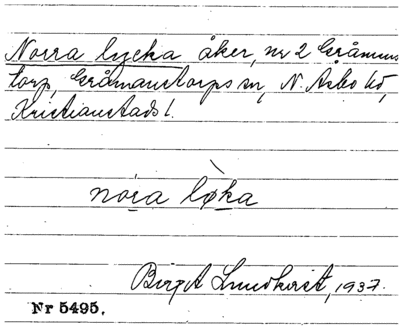 Norra lycka åker, nr 2 Gråmans
torp, Gråmanstorps sn, N. Åsbo hd,
Kristianstads l.
nora løka
Birgit Lundkvist, 1937.
Nr 5495.